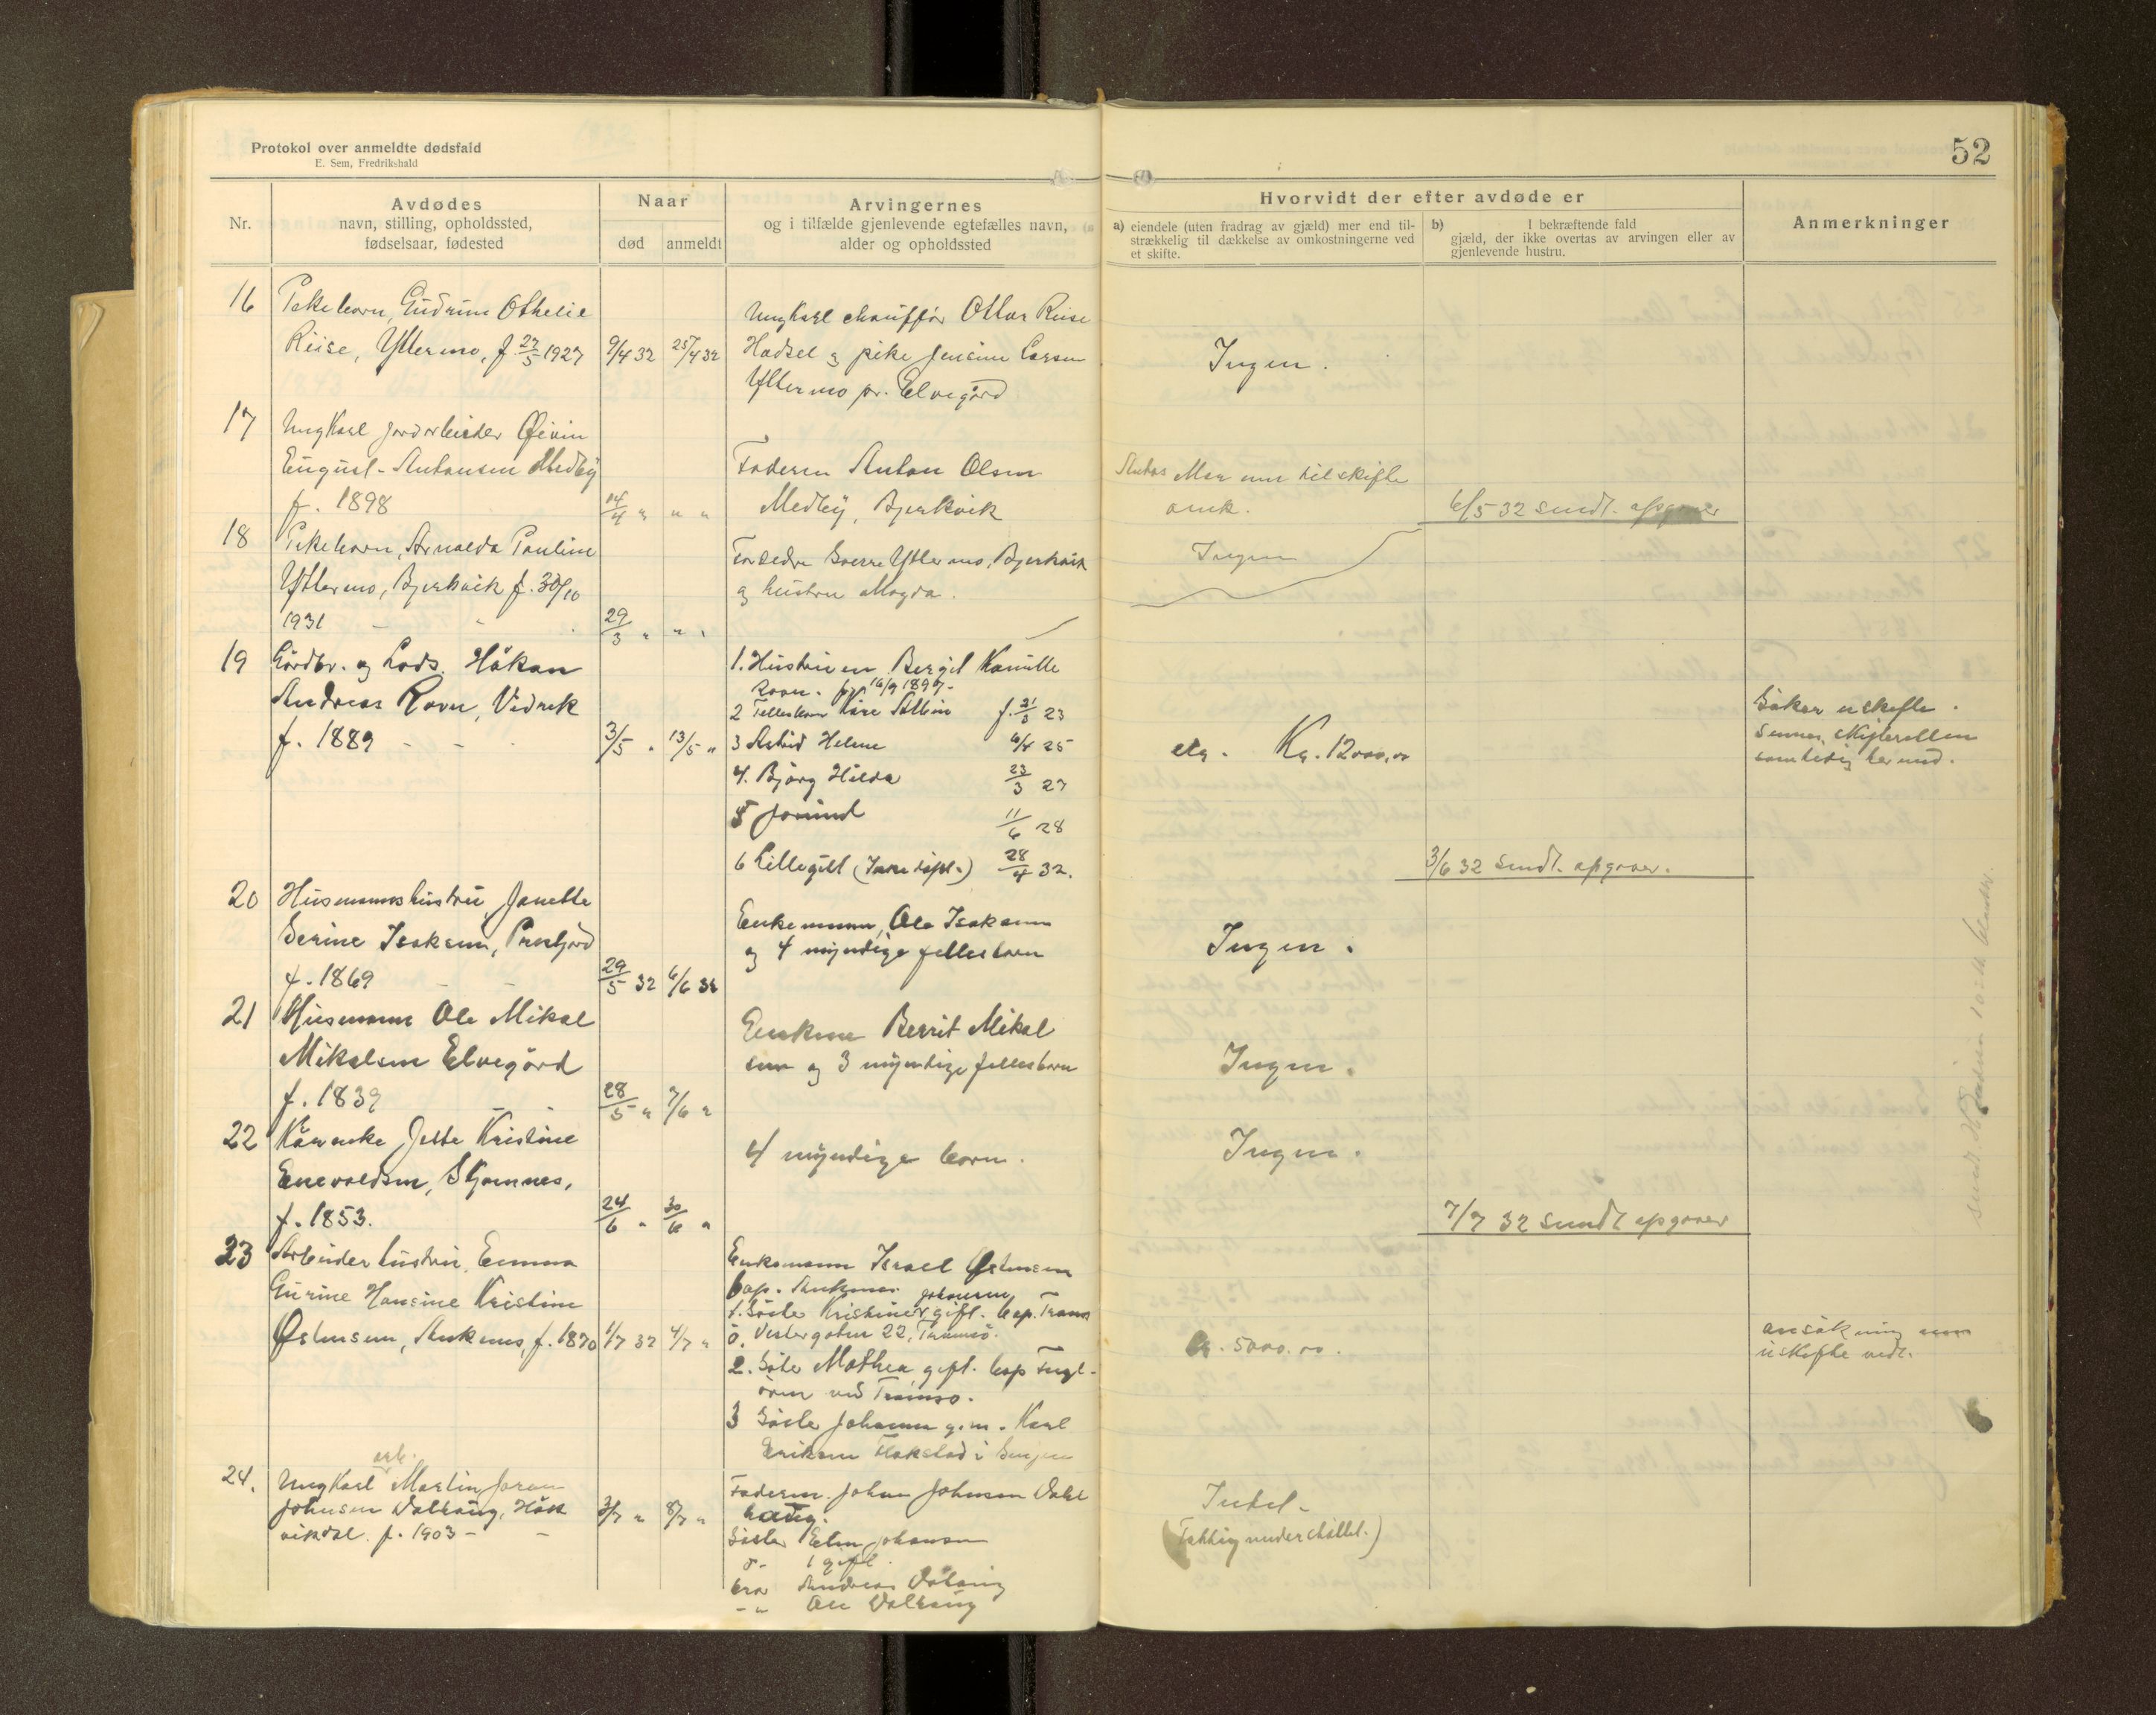 Protokol over anmeldte dødsfald
E. Sem, Fredrikshald
52
Nr.
Avdødes
navn, stilling, opholdssted,
fødselsaar, fødested
Naar
død
anmeldt
Arvingernes
og i tilfælde gjenlevende egtefælles navn,
alder og opholdssted
Hvorvidt der efter avdøde er
a) eiendele (uten fradrag av gjæld) mer end til-
strækkelig til dækkelse av omkostningerne ved
et skifte.
b) I bekræftende fald
gjæld, der ikke overtas av arvingen eller av
gjenlevende hustru.
Anmerkninger
16
Pikebarn, Gudrun Othelie
Riise, Yttermo, f. 27/5 1927
9/4 32
25/4 32
Ungkarl chauffør Ottar Riise
Hadsel og pike Jensine Larsen
Yttermo pr. Elvegård
Ingen.
17
Ungkarl jordarbeider Øivin
August Antonsen Medby
f. 1898
14/4 " " "
Faderen Anton Olsen
Medby, Bjerkvik
Antas Mer enn til skifte
omk.
6/5 32 sendt. opgaver
18
Pikebarn, Arnalda Pauline
Yttermo, Bjerkvik f. 30/10
1931
29/3 " " "
Foreldre Sverre Yttermo, Bjerkvik
og hustru Magda.
Ingen
19
Gårdbr. og Lods. Håkon
Andreas Ravn, Vidrek
f. 1889 - -
3/5 "
13/5 "
1. Hustruen Bergit Kamille
Ravn. 16/9 1897.
2 Fellesbarn Kåre Albin f. 21/3 23
3 Astrid Helene 6/4 25
4. Bjørg Hilda 23/3 27
5 Jorund 11/6 28
6 Lillegitt (Ikke døpt.) 28/4 32.
Kr. 12000,00
Søker uskifte.
samtidig hermed.
3/6 32 sendt. opgaver.
20
Husmannshustru Janette
Serine Isaksen,
f. 1869
29/5 32
6/6 32
Enkemann, Ole Isaksen
og 4 myndige fellesbarn
Ingen.
21
Husmann Ole Mikal
Mikalsen Elvegård
f. 1839
28/5 "
7/6 "
Enken Berrit Mikal
sen og 3 myndige fellesbarn
Ingen.
22
Kårenke Jette Kristine
Enevoldsen, Skjomnes,
f. 1853.
24/6 "
30/6 "
4 myndige barn.
Ingen.
7/7 32 sendt opgaver
23
Arbeiderhustru, Emma
Gurine Hansine Kristine
Østensen, Ankenes, f. 1870
1/7 32
4/7 "
Enkemann Israel Østensen
bop. Ankenes
1. Søster Kristine gift. bop. Troms
ø. Vestergaten 22, Tromsø.
2. Søster Mathea gift. bop Tungl-
ved Tromsø.
3 Søster Johanna g.m. Karl
Eriksen i Senjen
5000.00.
ansøkning om
uskifte vedl.
24.
Ungkarl arb. Martin Joran
Johnsen
f. 1903 - -
3/7 "
8/7 "
Faderen Johan Johnsen
Søster Johansen
1 gift
bror Andreas
- " Ole
Intet.
(Fattigunderstøttet.)